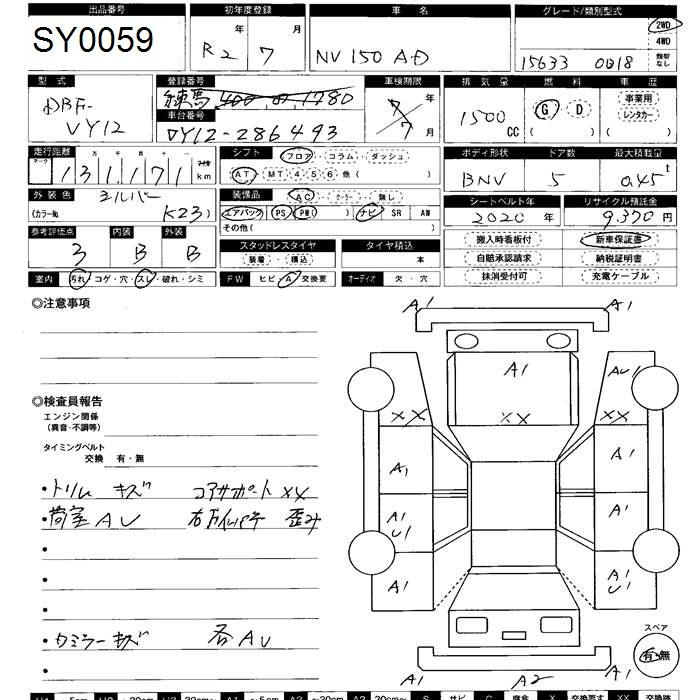 出品番号 初年度登録 車名 グレード/類別型式
SY0059 R2 年 7 月 NV150 AD 15633 0018 2WD 4WD 類型なし
型式 登録番号 車検期限 排気量 燃料 車歴
DBF-VY12 練馬 400 1780 7年 7月 1500 CC G・D ( ) 事業用 レンタカー ( )
車台番号
VY12-286493
走行距離 シフト フロア・コラム・ダッシュ ボディ形状 ドア数 最大積載量
マーク 十万千百十一 131,171 マイル km AT・MT 4 5 6 他( ) BNV 5 0.45t
外装色 シルバー 装備品 AC・クーラー・無し シートベルト年 リサイクル預託金
(カラーNo K23) エアバッグ( ) PS PW( ) ナビ SR AW 2020年 9,370円
参考評価点 内装 外装 その他( )
3 B B スタッドレスタイヤ タイヤ積込 搬入時看板付 新車保証書
装着・積込 本 自賠承認請求 納税証明書
室内 汚れ・コゲ・穴・スレ・破れ・シミ FW ヒビ・A・交換要 オーディオ 欠・穴 抹消受付可 充電ケーブル
◎注意事項
A1 A1
A1 AU1
XX XX XX
◎検査員報告
エンジン関係
(異音・不調等)
タイミングベルト
交換 有・無
A1 A1
・トリム キズ コアサポート XX
・荷室 AU 歪み
A1 U1 A1
A1 A1 U1
・ウラミラーキズ 各AU
スペア
有・無
A1 A2 A1